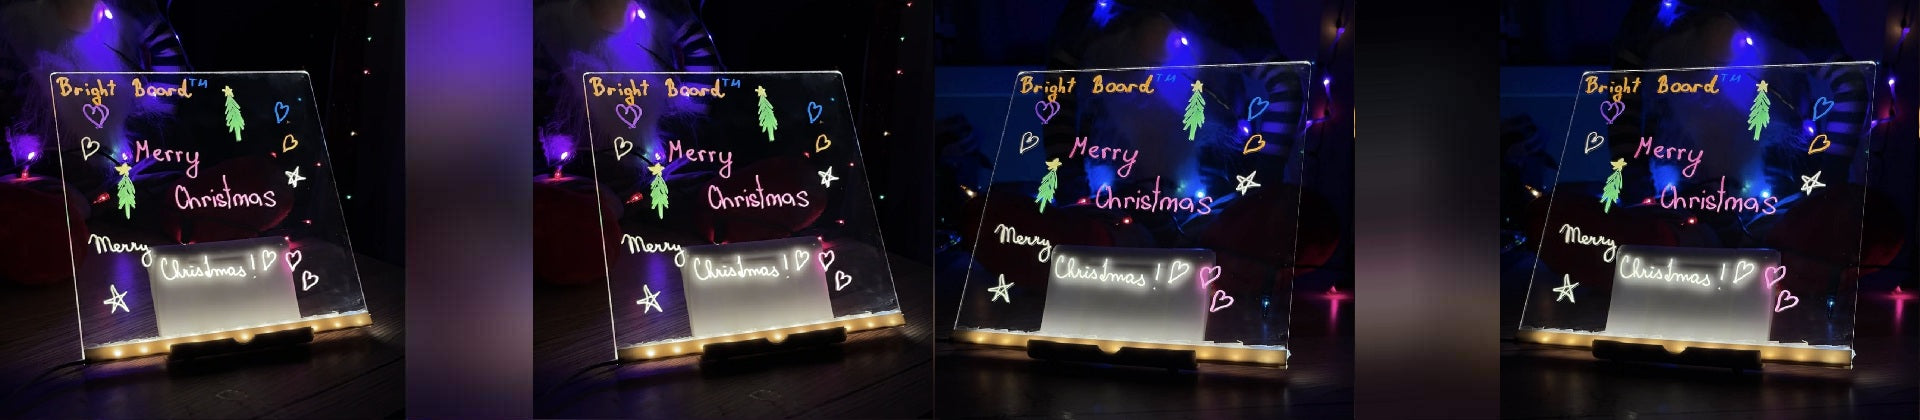 Bright Board™
Merry
Christmas
Merry
Christmas!
Bright Board™
Merry
Christmas
Merry
Christmas!
Bright Board™
Merry
Christmas
Merry
Christmas!
Bright Board™
Merry
Christmas
Merry
Christmas!